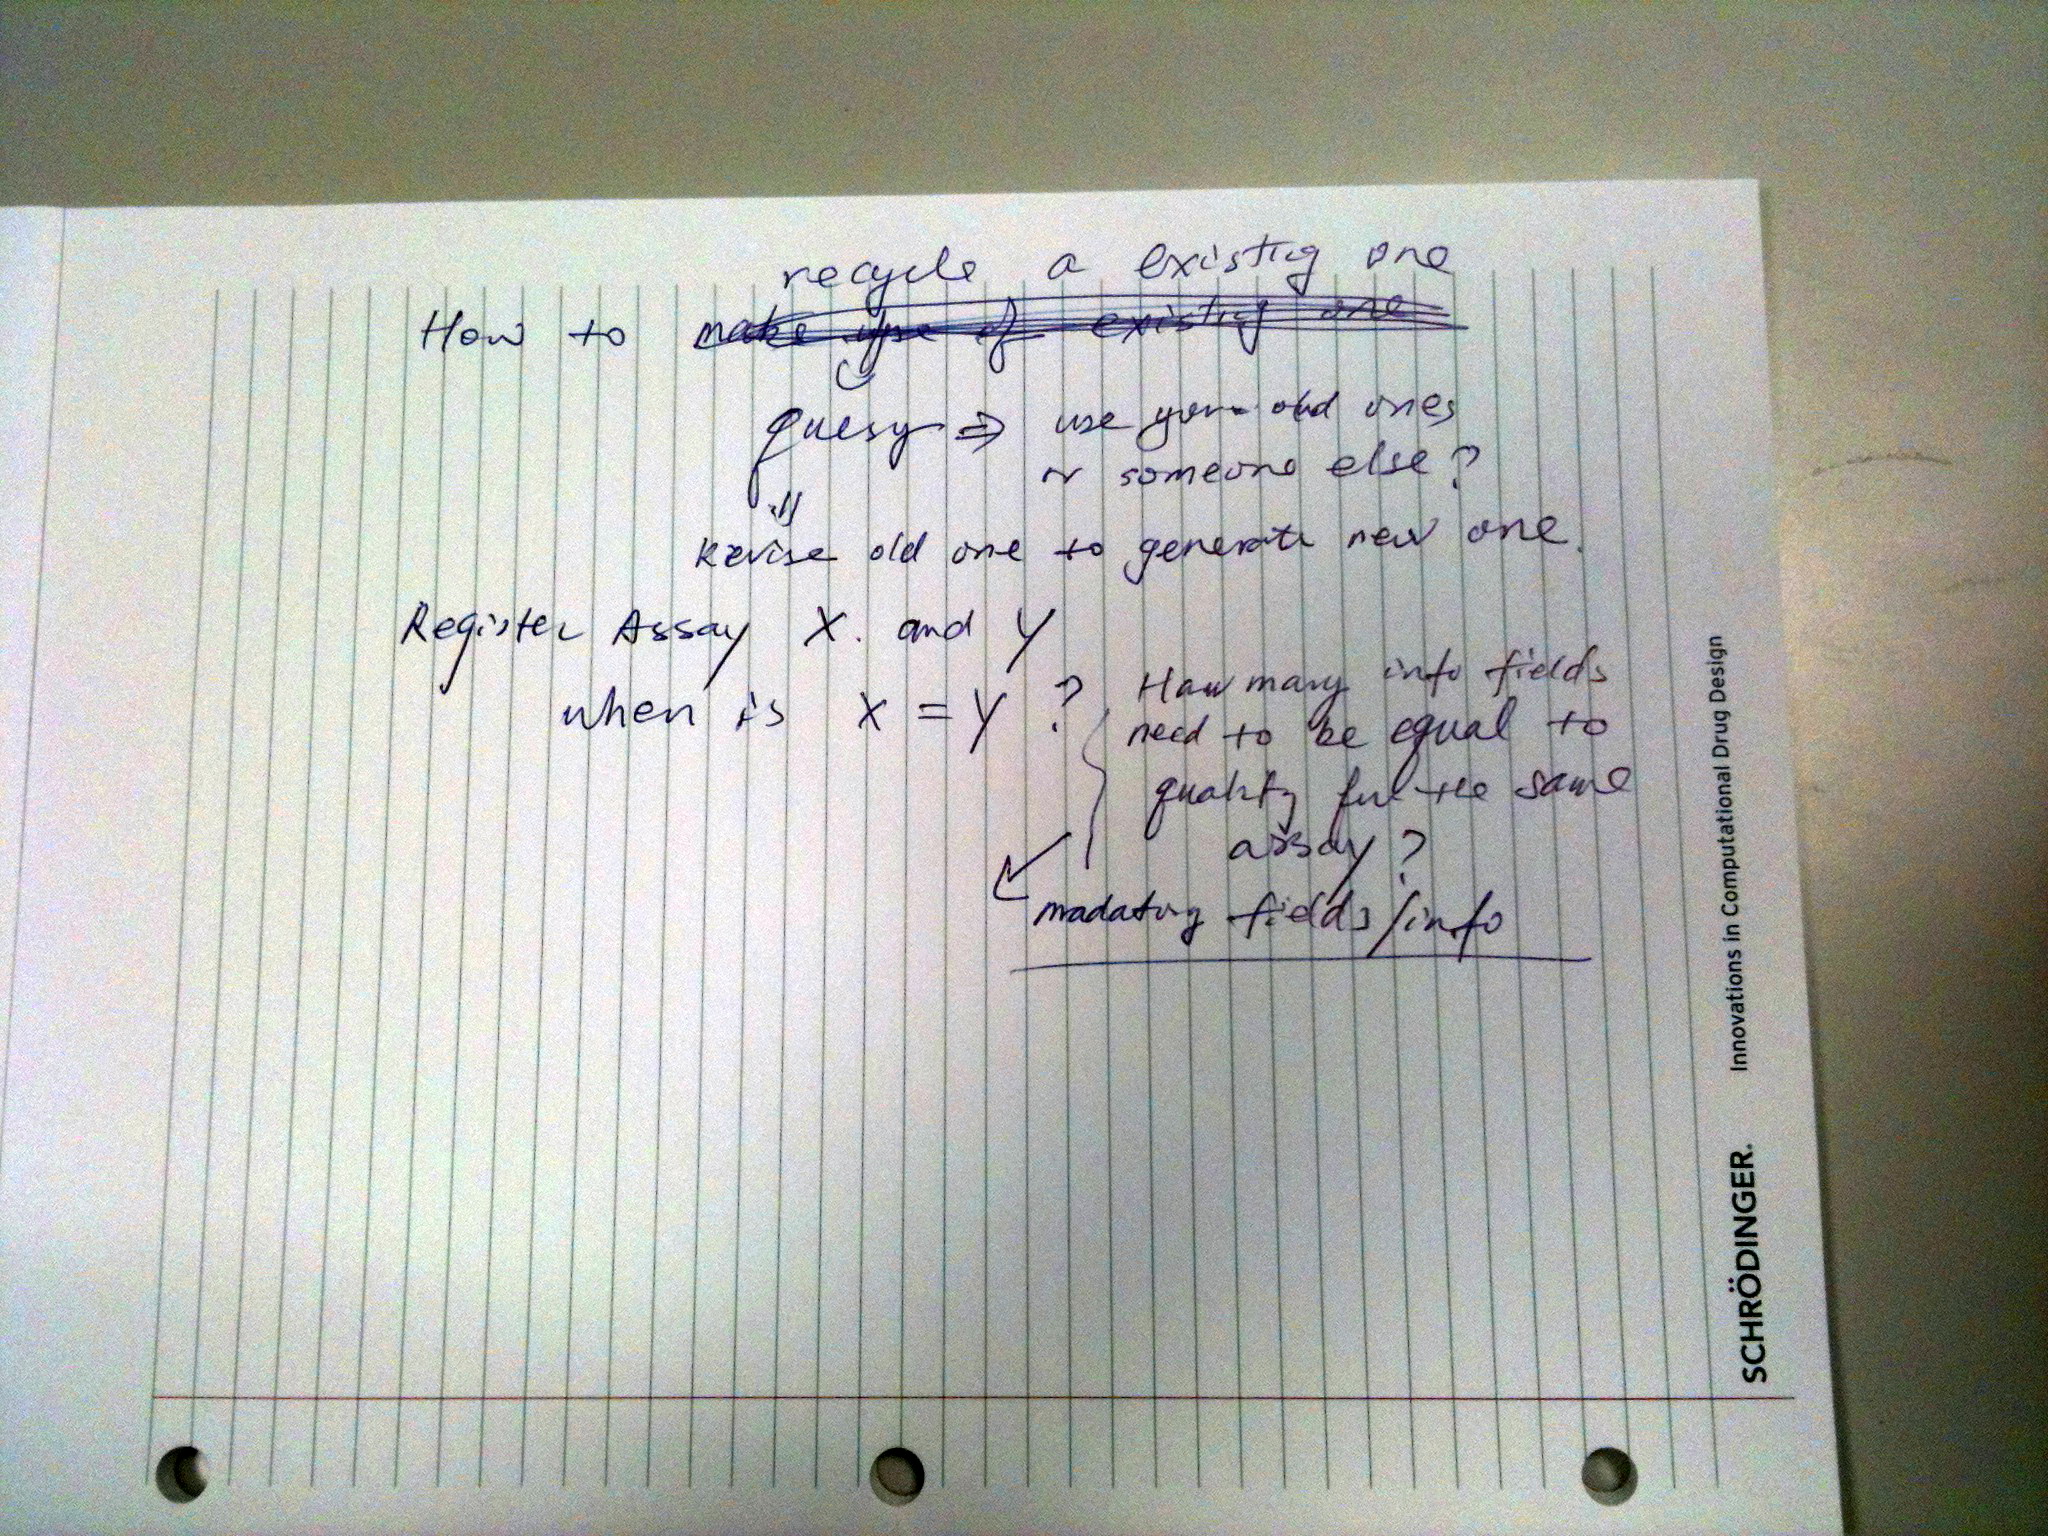 recycle a existing one
How to make use of existing one
query ⇒ use your old ones
or someone else?
⇓
Revise old one to generate new one.
Register Assay X. and Y
when is X = Y ?
How many info fields
need to be equal to
quality for the same
assay?
madatory fields/info
SCHRÖDINGER. Innovations in Computational Drug Design